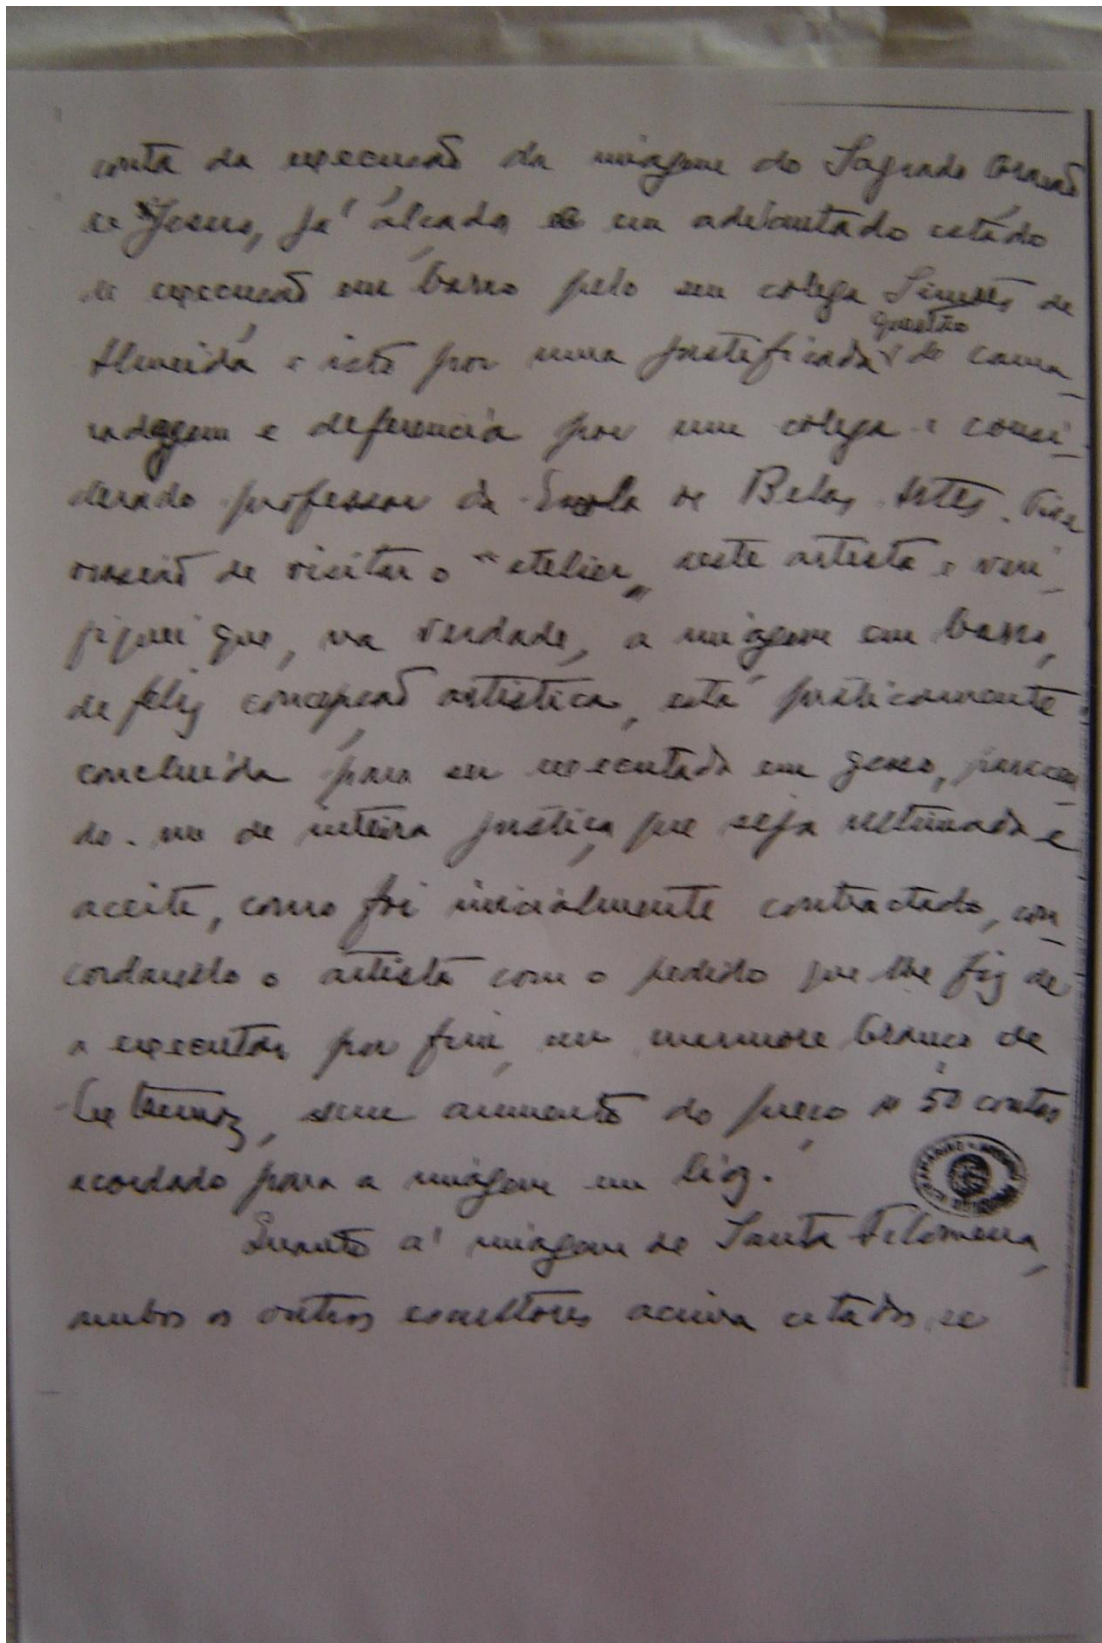 conta da execução da imagem do Sagrado Coração
de Jesus, já alçada e em adeantado estado
de execução em barro pelo seu colega Simões de
questão
Almeida e isto por uma justificada de cama_
radagem e deferencia por um colega e consi_
derado professor da Escola de Belas Artes. Tive
ocasião de visitar o "atelier" deste artista e veri_
fiquei que, na verdade, a imagem em barro,
de feliz concepção artistica, está práticamente
concluida para ser executada em gesso, parecen_
do-me de inteira justiça que seja ultimada e
aceite, como foi inicialmente contractado, con_
cordando o artista com o pedido que lhe fiz de
a executar por fim em marmore branco de
Estremoz, sem aumento do preço de 50 contos
acordado para a imagem em lioz.
Quanto á imagem de Santa Filomena,
ambos os outros escultores acima citados se